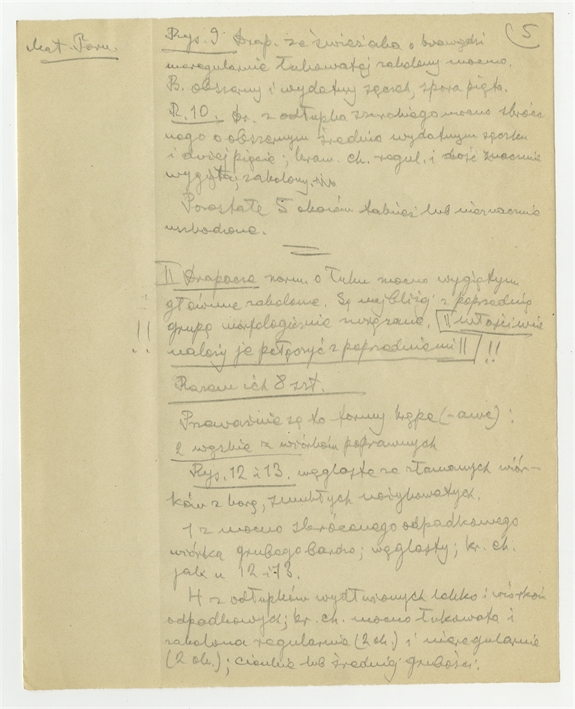 5
Mat. Pom.
Rys. 9 Drap. ze świeżaka o krawędzi
nieregularnie łukowatej zakolony mocno.
B. obszerny i wydatny sęczek, spora pięta.
R. 10. Dr. z odłupka szerokiego mocno skróco-
nego o obszernym średnio wydatnym sęczku
i dużej pięcie; kraw. ch. regul. i dość znacznie
wygięta, zakolony.
Pozostałe 5 okazów słabiej lub nieznacznie
uszkodzone.
II Drapacze norm. o łuku mocno wygiętym
głównie zakolone. Są najbliżej z poprzednią
grupą morfologicznie związane. || właściwie
!! należy je połączyć z poprzedniemi || !!
Razem ich 8 szt.
Przeważnie są to formy krępe (-awe):
2 węższe z wiórków poprawnych
Rys. 12 i 13. węglaste ze złamanych wiór-
ków z horą, zmukłych nożykowatych.
1 z mocno skróconego odpadkowego
wiórka grubego bardzo; węglasty; kr. ch.
jak u 12 i 13.
4 z odłupków wydłużonych lekko i wiórków
odpadkowych; kr. ch. mocno łukowata i
zakolona regularnie (2 ok.) i nieregularnie
(2 ok.); cienkie lub średniej grubości.